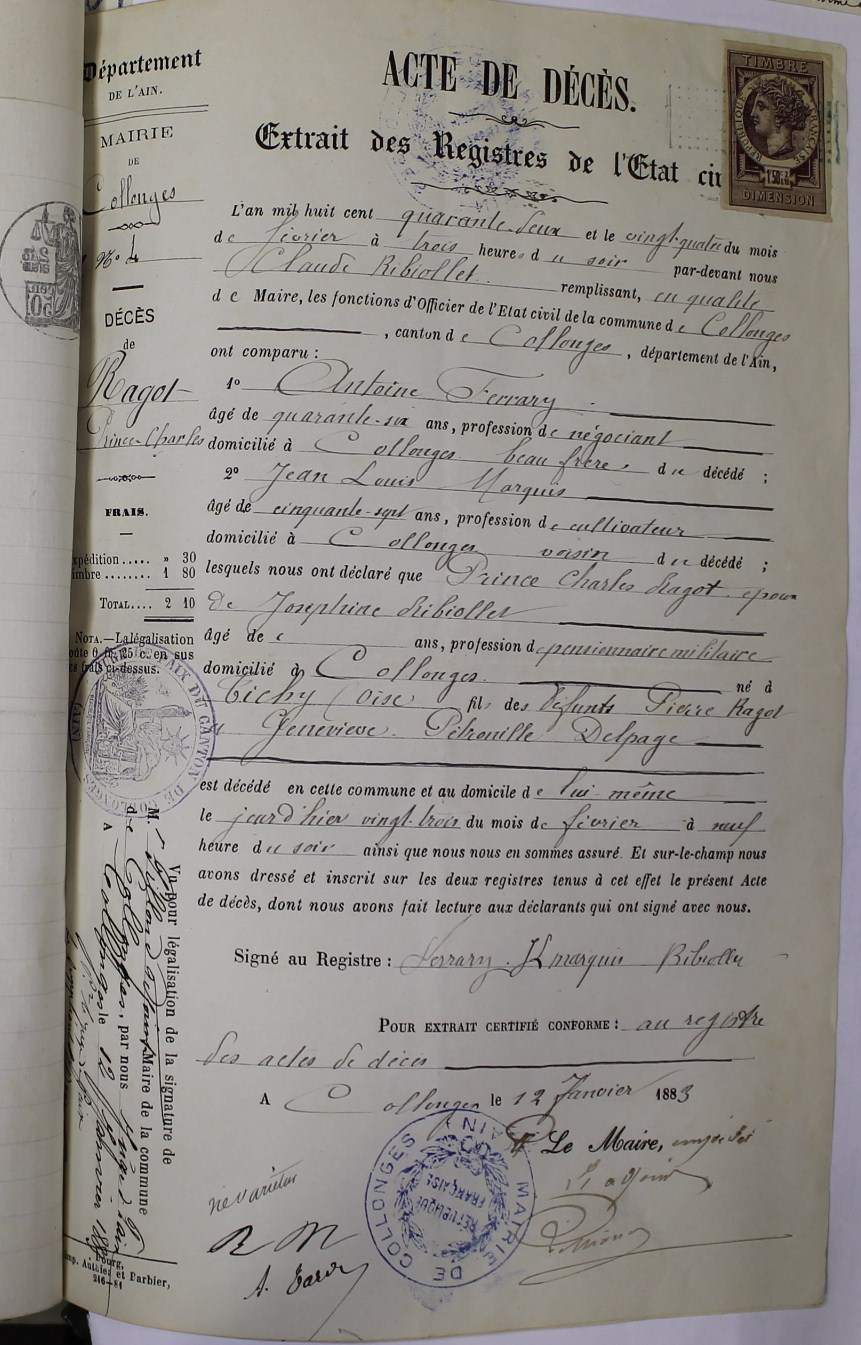 Département
DE L'AIN.
MAIRIE
DE
Collonges
No 4
DÉCÈS
de
Ragot
Prince-Charles
FRAIS.
Expédition..... » 30
Timbre........ 1 80
TOTAL.... 2 10
NOTA.—La légalisation
coûte 0 fr. 25 c. en sus
des frais ci-dessus.
ACTE DE DÉCÈS.
Extrait des Registres de l'Etat civ
TIMBRE
RÉPUBLIQUE FRANÇAISE
1f50c
DIMENSION
L'an mil huit cent quarante-deux et le vingt-quatre du mois
de février à trois heures du soir par-devant nous
Claude Ribiollet remplissant, en qualité
de Maire, les fonctions d'Officier de l'Etat civil de la commune de Collonges
, canton de Collonges, département de l'Ain,
ont comparu :
1o Antoine Ferrary
âgé de quarante-six ans, profession de négociant
domicilié à Collonges beau frère du décédé ;
2o Jean Louis Marquis
âgé de cinquante-sept ans, profession de cultivateur
domicilié à Collonges voisin du décédé ;
lesquels nous ont déclaré que Prince Charles Ragot époux
de Josephine Ribiollet
âgé de ans, profession de pensionnaire militaire
domicilié à Collonges né à
Tichy (Oise fils des défunts Pierre Ragot
et Geneviève Pétronille Delpage
est décédé en cette commune et au domicile de lui même
le jourd'hier vingt-trois du mois de février à neuf
heure du soir ainsi que nous nous en sommes assuré. Et sur-le-champ nous
avons dressé et inscrit sur les deux registres tenus à cet effet le présent Acte
de décès, dont nous avons fait lecture aux déclarants qui ont signé avec nous.
Signé au Registre : Ferrary. JL marquis Ribiollet
POUR EXTRAIT CERTIFIÉ CONFORME : au registre
des actes de décès
A Collonges le 12 Janvier 1883
Le Maire, empêché
L'adjoint
ne varietur
MAIRIE DE COLLONGES (AIN)
RÉPUBLIQUE FRANÇAISE
PAIX DU CANTON DE COLLONGES (AIN)
Vu pour légalisation de la signature de
M. Maire de la commune
de Collonges, par nous
A Collonges le 12 Janvier
Bourg,
imp. Authier et Barbier,
246-81